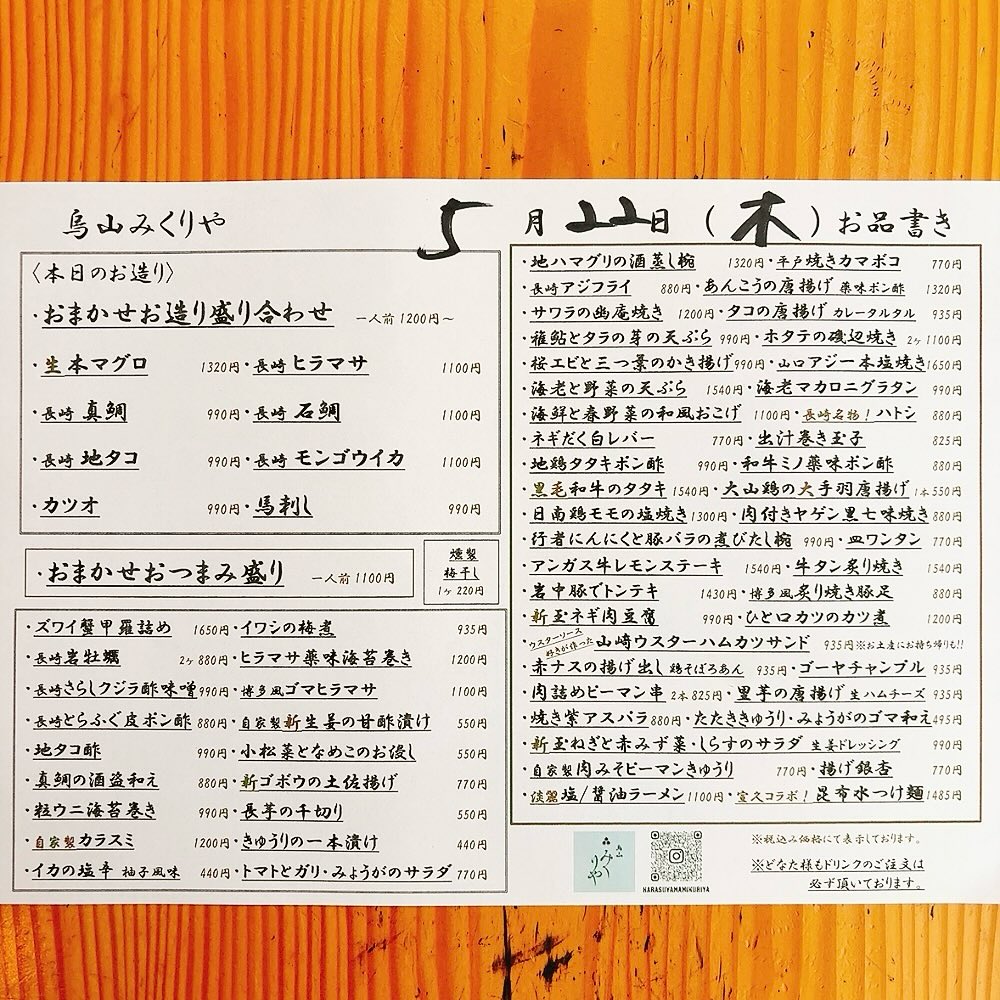 烏山みくりや
5月22日(木)お品書き
〈本日のお造り〉
・おまかせお造り盛り合わせ 一人前1200円～
・生本マグロ 1320円・長崎ヒラマサ 1100円
・長崎真鯛 990円・長崎石鯛 1100円
・長崎地タコ 990円・長崎モンゴウイカ 1100円
・カツオ 990円・馬刺し 990円
・おまかせおつまみ盛り 一人前1100円
燻製
梅干し
1ヶ220円
・ズワイ蟹甲羅詰め 1650円・イワシの梅煮 935円
・長崎岩牡蠣 2ヶ880円・ヒラマサ薬味海苔巻き 1200円
・長崎さらしクジラ酢味噌990円・博多風ゴマヒラマサ 1100円
・長崎とらふぐ皮ポン酢 880円・自家製新生姜の甘酢漬け 550円
・地タコ酢 990円・小松菜となめこのお浸し 550円
・真鯛の酒盗和え 880円・新ゴボウの土佐揚げ 770円
・粒ウニ海苔巻き 990円・長芋の千切り 550円
・自家製カラスミ 1200円・きゅうりの一本漬け 440円
・イカの塩辛 柚子風味 440円・トマトとガリ・みょうがのサラダ 770円
・地ハマグリの酒蒸し椀 1320円・平戸焼きカマボコ 770円
・長崎アジフライ 880円・あんこうの唐揚げ 薬味ポン酢 1320円
・サワラの幽庵焼き 1200円・タコの唐揚げ カレータルタル 935円
・稚鮎とタラの芽の天ぷら 990円・ホタテの磯辺焼き 2ヶ1100円
・桜エビと三つ葉のかき揚げ990円・山口アジ一本塩焼き1650円
・海老と野菜の天ぷら 1540円・海老マカロニグラタン 990円
・海鮮と春野菜の和風おこげ 1100円・長崎名物！ハトシ 880円
・ネギだく白レバー 770円・出汁巻き玉子 825円
・地鶏タタキポン酢 990円・和牛ミノ薬味ポン酢 880円
・黒毛和牛のタタキ 1540円・大山鶏の大手羽唐揚げ 1本550円
・日南鶏モモの塩焼き1300円・肉付きヤゲン黒七味焼き880円
・行者にんにくと豚バラの煮びたし椀 990円・皿ワンタン 770円
・アンガス牛レモンステーキ 1540円・牛タン炙り焼き 1540円
・岩中豚でトンテキ 1430円・博多風炙り焼き豚足 880円
・新玉ネギ肉豆腐 990円・ひと口カツのカツ煮 1200円
・ウスターソース好きが作った山﨑ウスターハムカツサンド 935円※お土産にお持ち帰りも!!
・赤ナスの揚げ出し 鶏そぼろあん 935円・ゴーヤチャンプル 935円
・肉詰めピーマン串 2本825円・里芋の唐揚げ 生ハムチーズ 935円
・焼き紫アスパラ880円・たたききゅうり・みょうがのゴマ和え495円
・新玉ねぎと赤みず菜・しらすのサラダ 生姜ドレッシング 990円
・自家製肉みそピーマンきゅうり 770円・揚げ銀杏 770円
・淡麗塩/醤油ラーメン1100円・宝久コラボ！昆布水つけ麺1485円
みくりや
KARASUYAMAMIKURIYA
※税込み価格にて表示しております。
※どなた様もドリンクのご注文は
必ず頂いております。